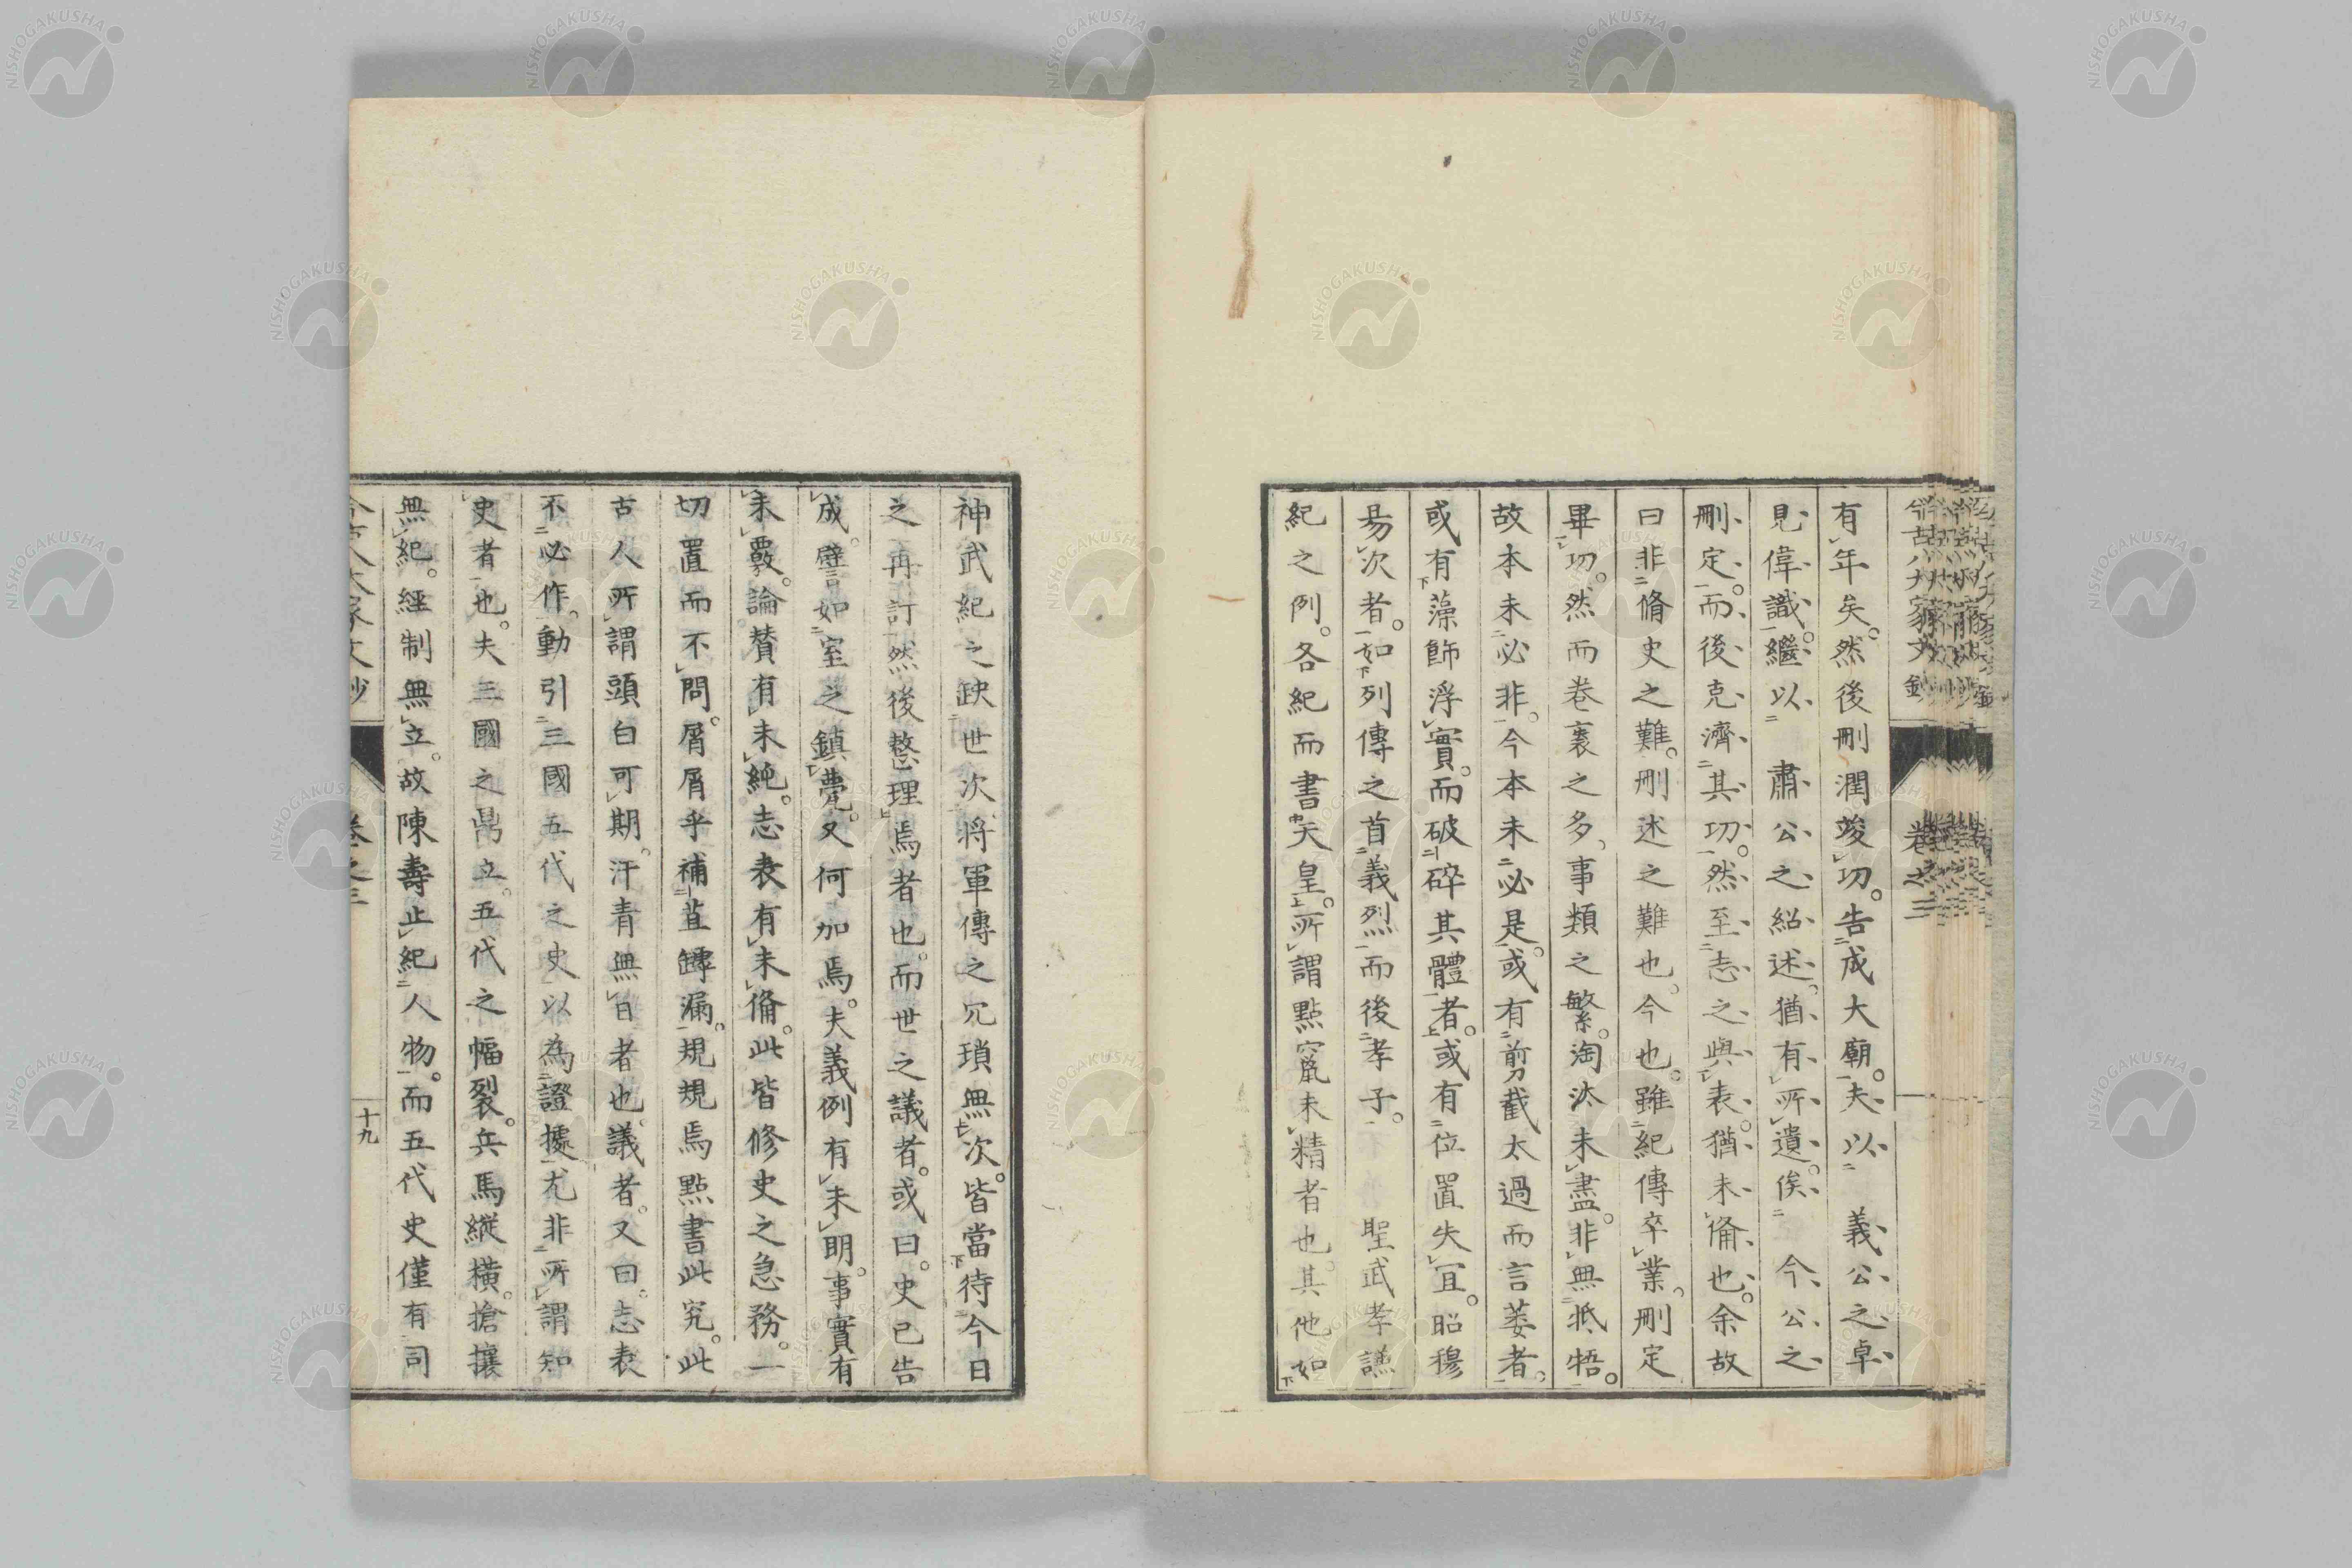 今古八大家文鈔 卷之三
有年矣。然後刪潤竣功。告成大廟。夫以 義公之卓
見偉識。繼以 肅公之紹述。猶有所遺。俟 今公之
刪定。而後克濟其功。然至志之與表。猶未備也。余故
曰非脩史之難。刪述之難也。今也。雖紀傳卒業。刪定
畢功。然而卷裹之多、事類之繁。淘汰未盡。非無牴牾。
故本未必非。今本未必是。或有剪截太過而言萎者。
或有藻飾浮實。而破碎其體者。或有位置失宜。昭穆
易次者。如列傳之首義烈而後孝子。 聖武孝謙
紀之例。各紀而書天皇。所謂點竄未精者也。其他如
神武紀之缺世次將軍傳之冗瑣無次。皆當待今日
之再訂然後整理焉者也。而世之議者。或曰。史已告
成。譬如室之鎮甍。又何加焉。夫義例有未明。事實有
未覈。論贊有未純。志表有未備。此皆修史之急務。一
切置而不問。屑屑乎補苴罅漏。規規焉點書此究。此
古人所謂頭白可期。汗青無日者也。議者。又曰。志表
不必作。動引三國五代之史以為證據。尤非所謂知
史者也。夫三國之鼎立。五代之幅裂。兵馬縱橫。搶攘
無紀。經制無立。故陳壽止紀人物。而五代史僅有司
今古八大家文鈔 卷之三 十九
NISHOGAKUSHA